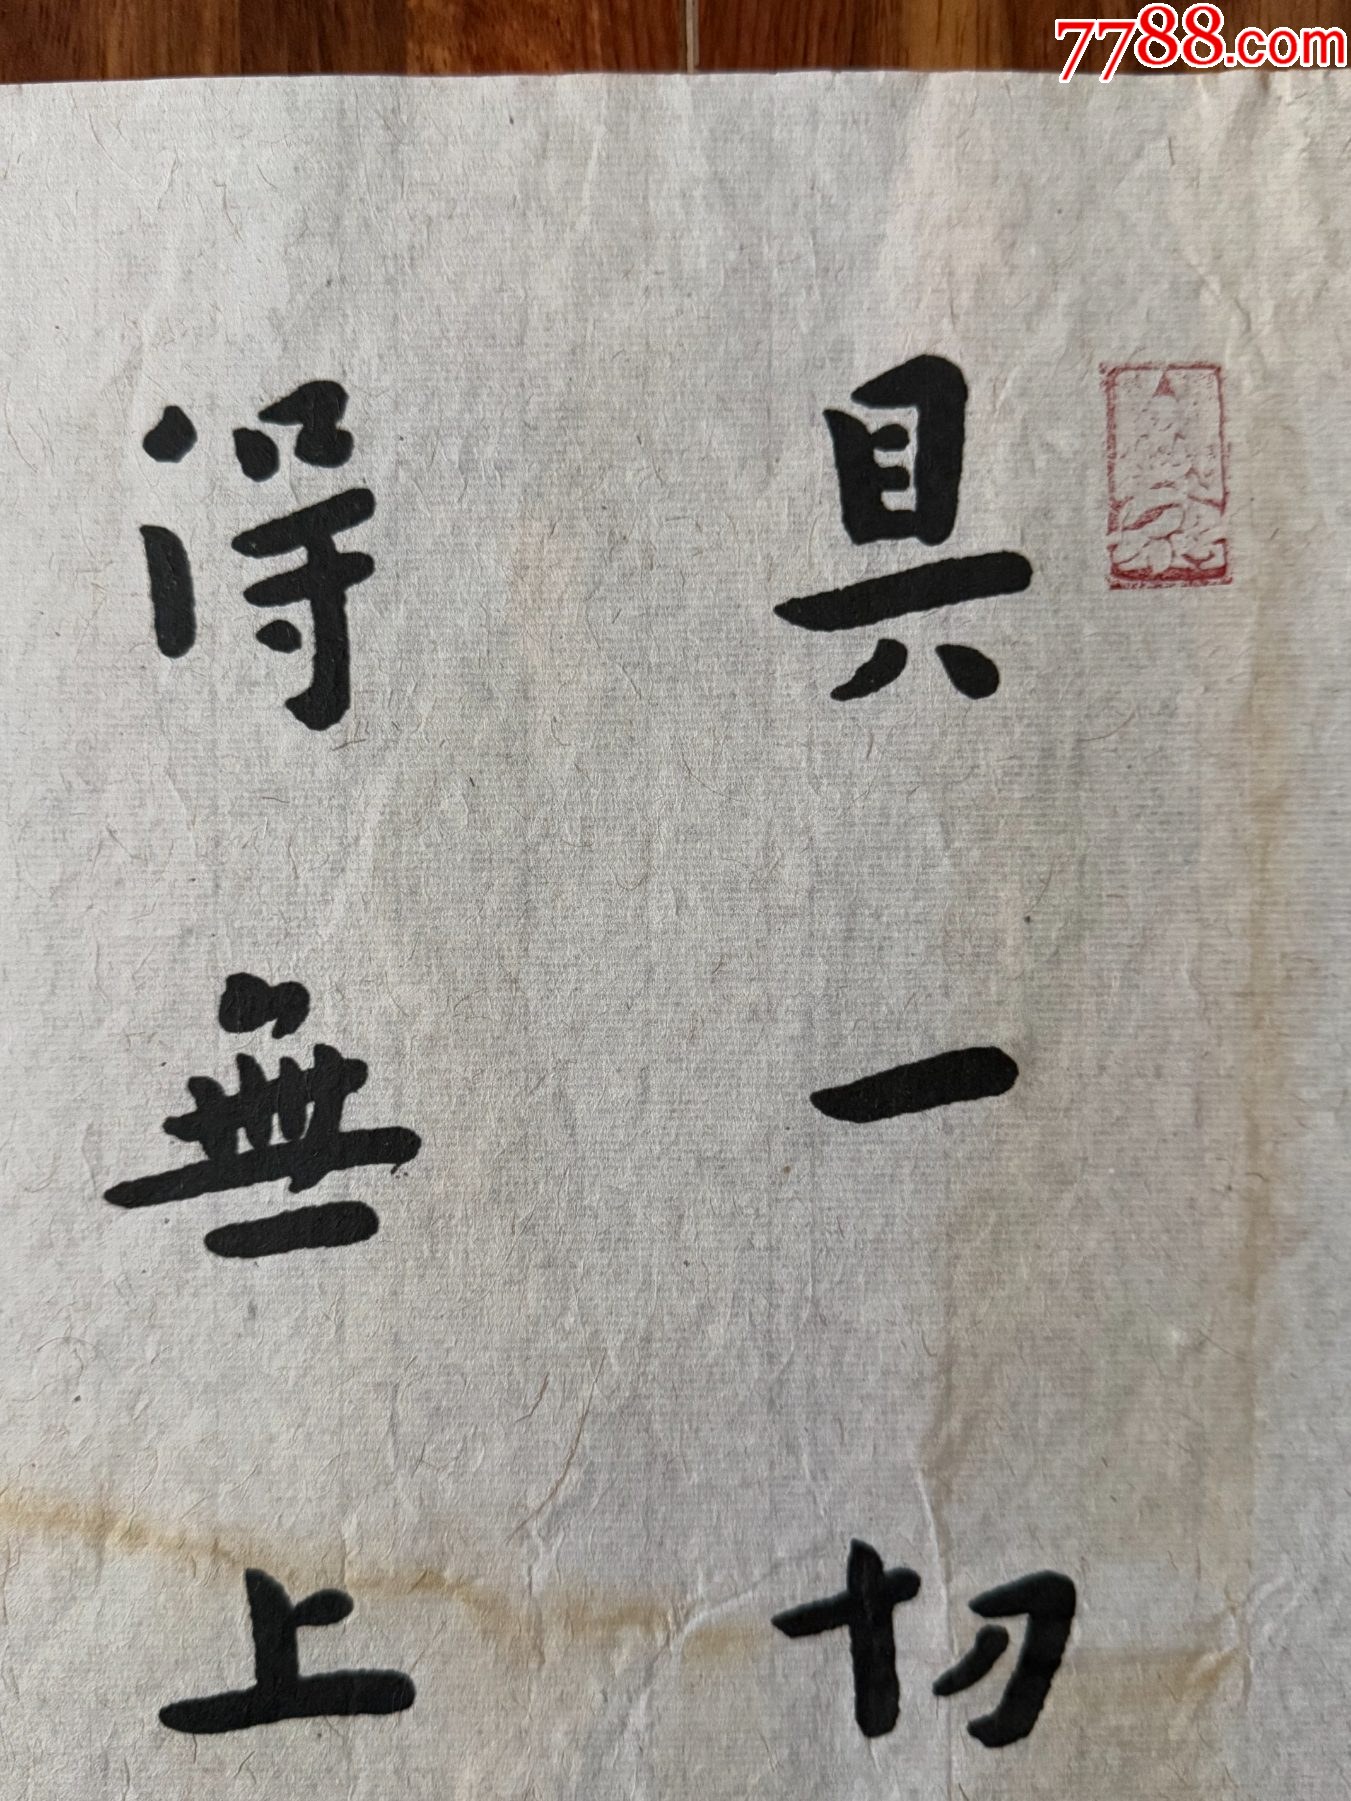 7788.com
具一切
得無上